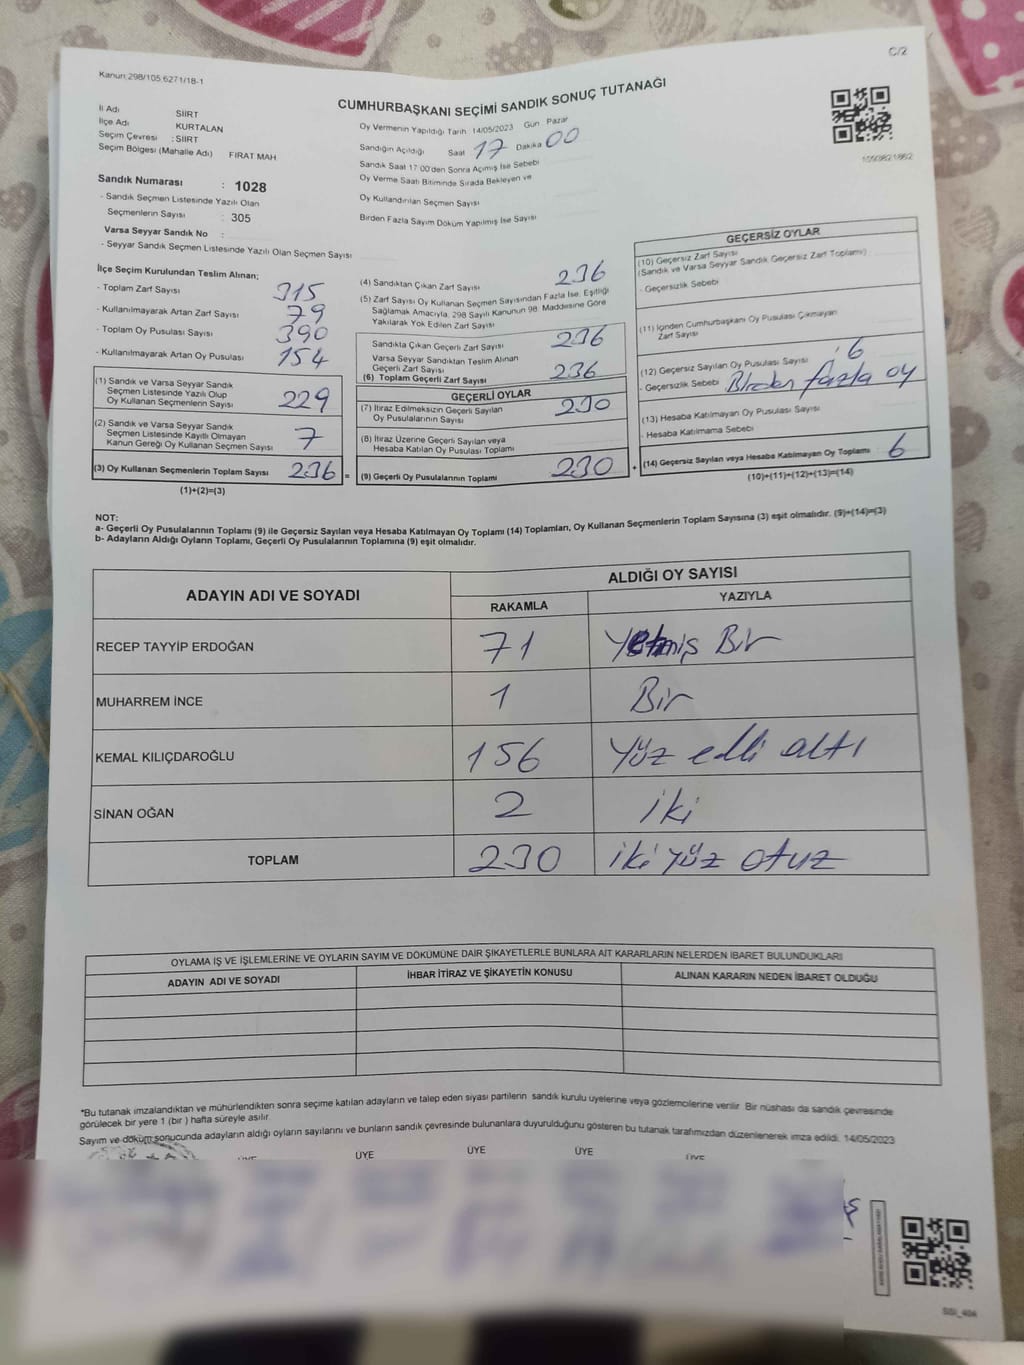 C/2
Kanun:298/105,6271/18-1
CUMHURBAŞKANI SEÇİMİ SANDIK SONUÇ TUTANAĞI
İl Adı SİİRT
İlçe Adı KURTALAN
Seçim Çevresi : SİİRT
Seçim Bölgesi (Mahalle Adı) FIRAT MAH
Sandık Numarası : 1028
- Sandık Seçmen Listesinde Yazılı Olan
Seçmenlerin Sayısı : 305
Varsa Seyyar Sandık No :
- Seyyar Sandık Seçmen Listesinde Yazılı Olan Seçmen Sayısı
Oy Vermenin Yapıldığı Tarih 14/05/2023 Gün Pazar
Sandığın Açıldığı Saat 17 Dakika 00
Sandık Saat 17:00'den Sonra Açımış İse Sebebi
Oy Verme Saati Bitiminde Sırada Bekleyen ve
Oy Kullandırılan Seçmen Sayısı
Birden Fazla Sayım Döküm Yapılmış İse Sayısı
1093821862
İlçe Seçim Kurulundan Teslim Alınan;
- Toplam Zarf Sayısı 315
- Kullanılmayarak Artan Zarf Sayısı 79
- Toplam Oy Pusulası Sayısı 390
- Kullanılmayarak Artan Oy Pusulası 154
(1) Sandık ve Varsa Seyyar Sandık
Seçmen Listesinde Yazılı Olup
Oy Kullanan Seçmenlerin Sayısı 229
(2) Sandık ve Varsa Seyyar Sandık
Seçmen Listesinde Kayıtlı Olmayan
Kanun Gereği Oy Kullanan Seçmen Sayısı 7
(3) Oy Kullanan Seçmenlerin Toplam Sayısı 236 =
(1)+(2)=(3)
(4) Sandıktan Çıkan Zarf Sayısı 236
(5) Zarf Sayısı Oy Kullanan Seçmen Sayısından Fazla İse, Eşitliği
Sağlamak Amacıyla, 298 Sayılı Kanunun 98. Maddesine Göre
Yakılarak Yok Edilen Zarf Sayısı
Sandıkta Çıkan Geçerli Zarf Sayısı 236
Varsa Seyyar Sandıktan Teslim Alınan
Geçerli Zarf Sayısı
(6) Toplam Geçerli Zarf Sayısı 236
GEÇERLİ OYLAR
(7) İtiraz Edilmeksizin Geçerli Sayılan
Oy Pusulalarının Sayısı 230
(8) İtiraz Üzerine Geçerli Sayılan veya
Hesaba Katılan Oy Pusulası Toplamı
(9) Geçerli Oy Pusulalarının Toplamı 230 +
GEÇERSİZ OYLAR
(10) Geçersiz Zarf Sayısı
(Sandık ve Varsa Seyyar Sandık Geçersiz Zarf Toplamı)
- Geçersizlik Sebebi
(11) İçinden Cumhurbaşkanı Oy Pusulası Çıkmayan
Zarf Sayısı
(12) Geçersiz Sayılan Oy Pusulası Sayısı : 6
- Geçersizlik Sebebi Birden fazla oy
(13) Hesaba Katılmayan Oy Pusulası Sayısı
- Hesaba Katılmama Sebebi
(14) Geçersiz Sayılan veya Hesaba Katılmayan Oy Toplamı 6
(10)+(11)+(12)+(13)=(14)
NOT:
a- Geçerli Oy Pusulalarının Toplamı (9) ile Geçersiz Sayılan veya Hesaba Katılmayan Oy Toplamı (14) Toplamları, Oy Kullanan Seçmenlerin Toplam Sayısına (3) eşit olmalıdır. (9)+(14)=(3)
b- Adayların Aldığı Oyların Toplamı, Geçerli Oy Pusulalarının Toplamına (9) eşit olmalıdır.
ADAYIN ADI VE SOYADI ALDIĞI OY SAYISI
RAKAMLA YAZIYLA
RECEP TAYYİP ERDOĞAN 71 Yetmiş Bir
MUHARREM İNCE 1 Bir
KEMAL KILIÇDAROĞLU 156 Yüz elli altı
SİNAN OĞAN 2 iki
TOPLAM 230 iki yüz otuz
OYLAMA İŞ VE İŞLEMLERİNE VE OYLARIN SAYIM VE DÖKÜMÜNE DAİR ŞİKAYETLERLE BUNLARA AİT KARARLARIN NELERDEN İBARET BULUNDUKLARI
ADAYIN ADI VE SOYADI İHBAR İTİRAZ VE ŞİKAYETİN KONUSU ALINAN KARARIN NEDEN İBARET OLDUĞU
*Bu tutanak imzalandıktan ve mühürlendikten sonra seçime katılan adayların ve talep eden siyasi partilerin sandık kurulu üyelerine veya gözlemcilerine verilir. Bir nüshası da sandık çevresinde
görülecek bir yere 1 (bir) hafta süreyle asılır.
Sayım ve döküm sonucunda adayların aldığı oyların sayılarını ve bunların sandık çevresinde bulunanlara duyurulduğunu gösteren bu tutanak tarafımızdan düzenlenerek imza edildi. 14/05/2023
ÜYE ÜYE ÜYE ÜYE ÜYE